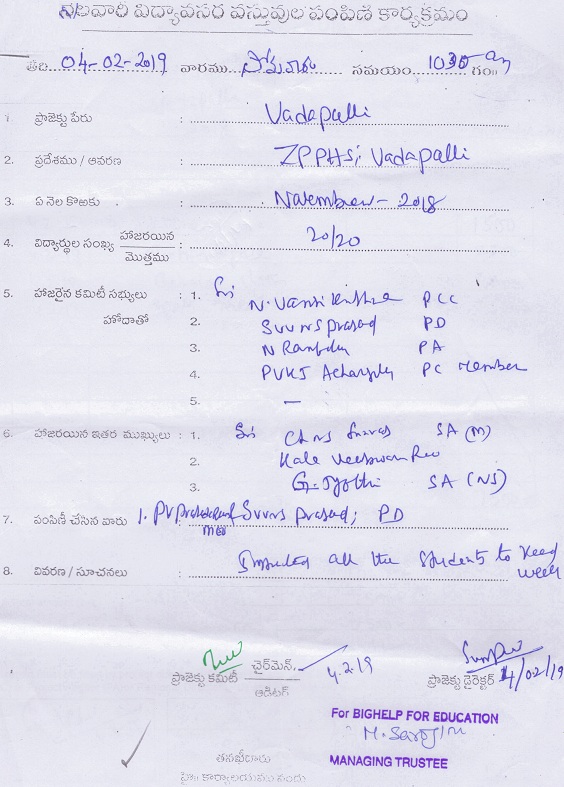 నెలవారి విద్యావసర వస్తువుల పంపిణి కార్యక్రమం
తేది. 04-02-2019 వారము. సోమవారం సమయం. 1030 am గం॥
1. ప్రాజెక్టు పేరు : Vadapalli
2. ప్రదేశము / ఆవరణ : ZPPHS; Vadapalli
3. ఏ నెల కొఱకు : November - 2018
4. విద్యార్థుల సంఖ్య హాజరయిన / మొత్తము : 20/20
5. హాజరైన కమిటీ సభ్యులు : 1. N. Vamsi PCC
హోదాతో 2. SVVNS Prasad PD
3. N PA
4. PVKS PC Member
5. —
6. హాజరయిన ఇతర ముఖ్యులు : 1. Ch NS SA (M)
2. Kale Veeswara Rao
3. G. Jyothi SA (NS)
7. పంపిణీ చేసిన వారు : 1. PV SVVNS Prasad; PD
8. వివరణ / సూచనలు : all the students to
week
చైర్‌మెన్, 4.2.19
ప్రాజెక్టు కమిటీ ఆడిటర్ ప్రాజెక్టు డైరెక్టర్ 4/02/19
For BIGHELP FOR EDUCATION
M. Sarojini
MANAGING TRUSTEE
తనఖీదారు
హై॥ కార్యాలయము నందు